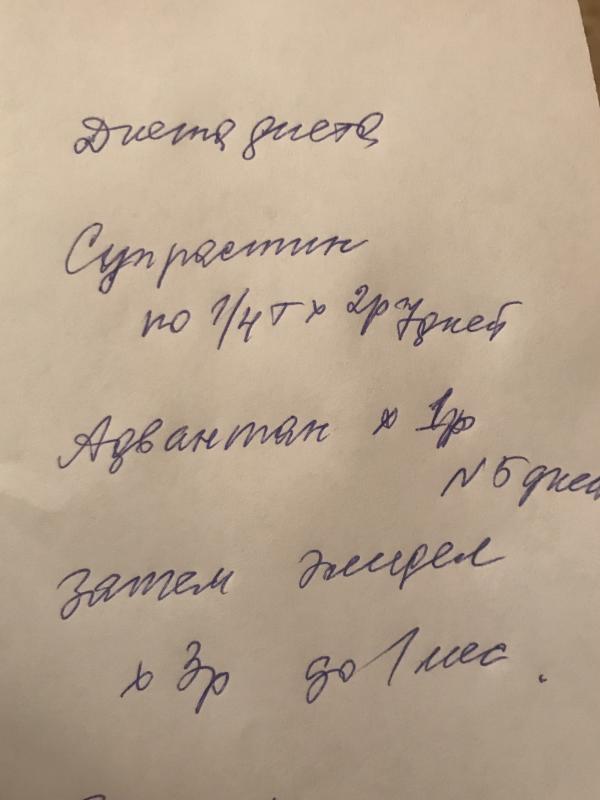 Диета диета
Супрастин
по 1/4 т х 2р 7дней
Адвантан х 1р
N 5 дней
Затем элидел
х 3р до 1 мес.